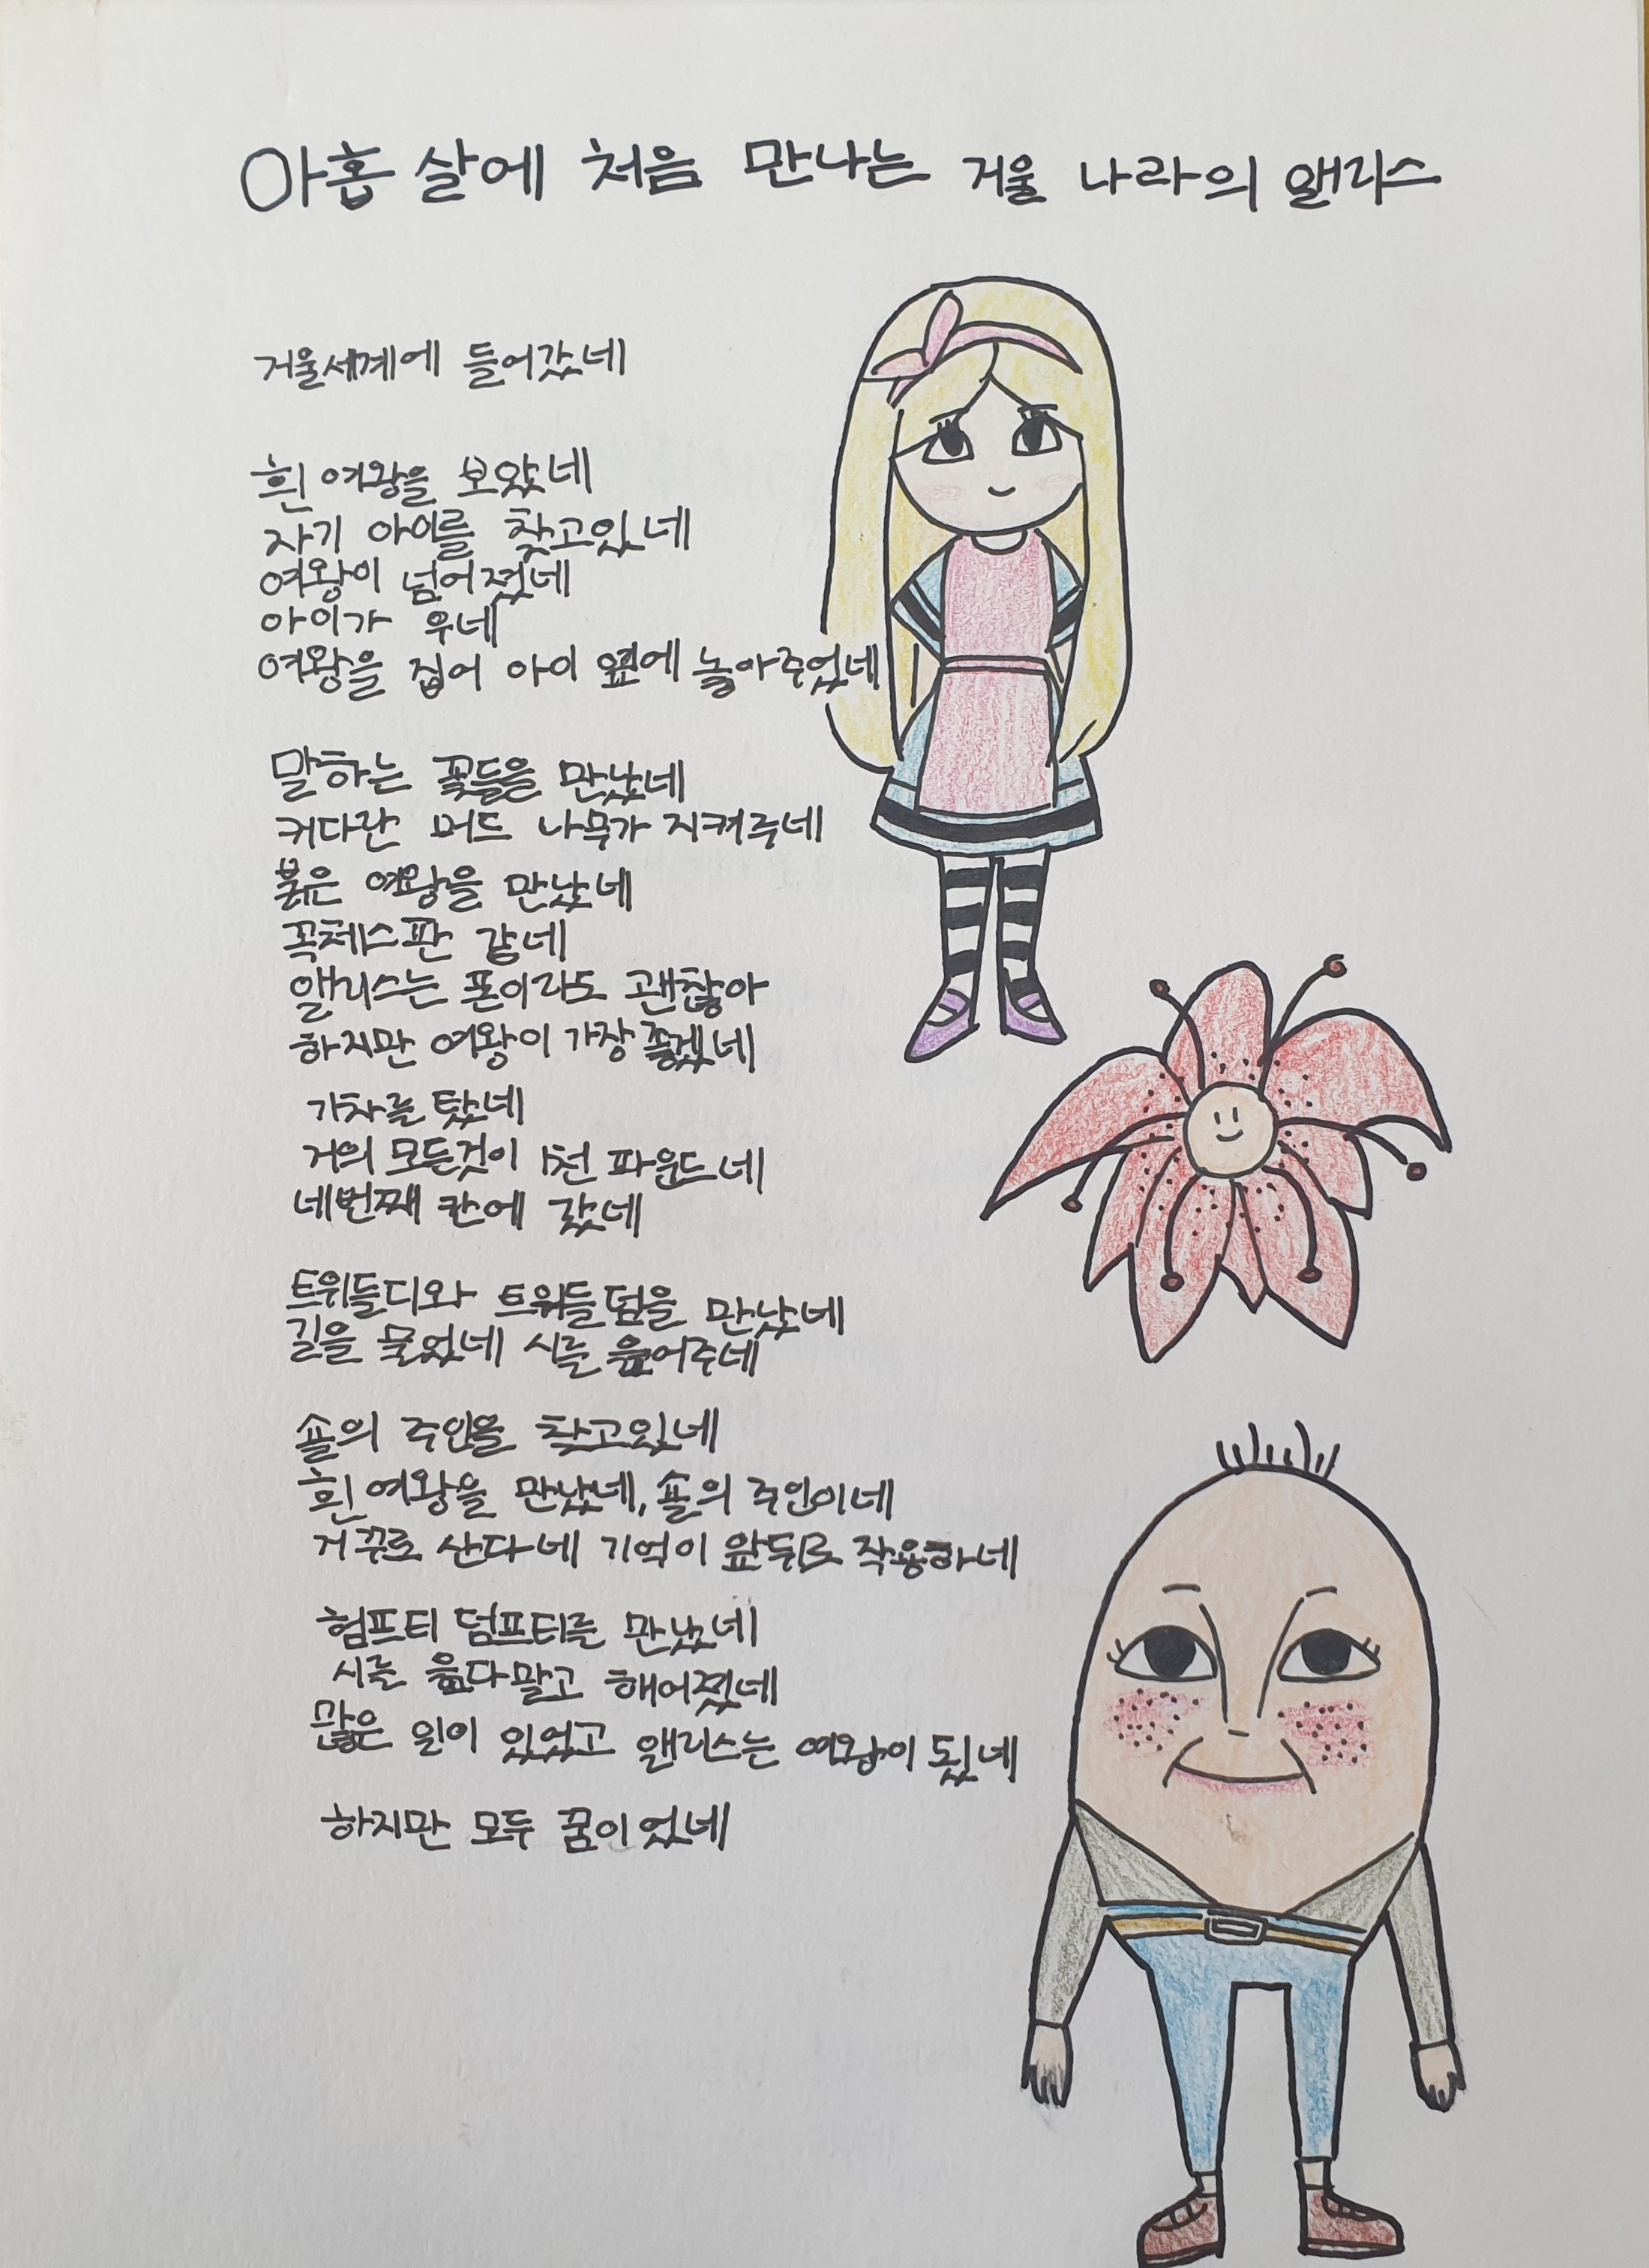 아홉 살에 처음 만나는 거울 나라의 앨리스
거울세계에 들어갔네
흰 여왕을 보았네
자기 아이를 찾고있네
여왕이 넘어졌네
아이가 우네
여왕을 집어 아이 옆에 놓아주었네
말하는 꽃들을 만났네
커다란 버드 나무가 지켜주네
붉은 여왕을 만났네
꼭체스판 같네
앨리스는 폰이라도 괜찮아
하지만 여왕이 가장 좋겠네
기차를 탔네
거의 모든것이 1천 파운드네
네번째 칸에 갔네
트위들디와 트위들덤을 만났네
길을 물었네 시를 읊어주네
숄의 주인을 찾고있네
흰 여왕을 만났네, 숄의 주인이네
거꾸로 산다네 기억이 앞뒤로 작용하네
험프티 덤프티를 만났네
시를 읊다말고 헤어졌네
많은 일이 있었고 앨리스는 여왕이 됬네
하지만 모두 꿈이었네